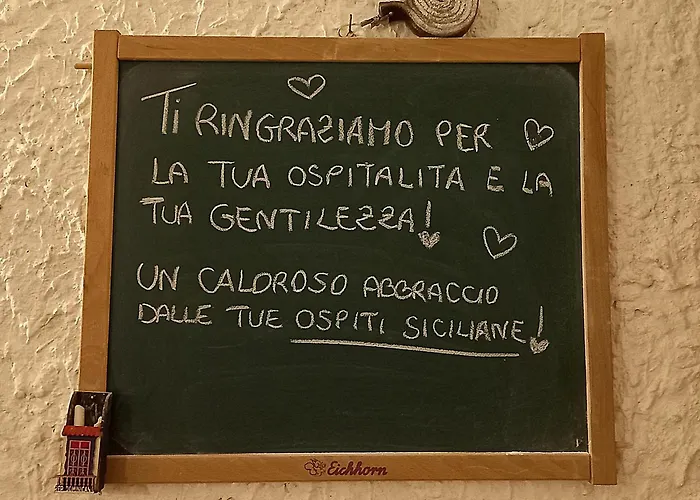 TI RINGRAZIAMO PER
LA TUA OSPITALITA E LA
TUA GENTILEZZA!
UN CALOROSO ABBRACCIO
DALLE TUE OSPITI SICILIANE!
Eichhorn